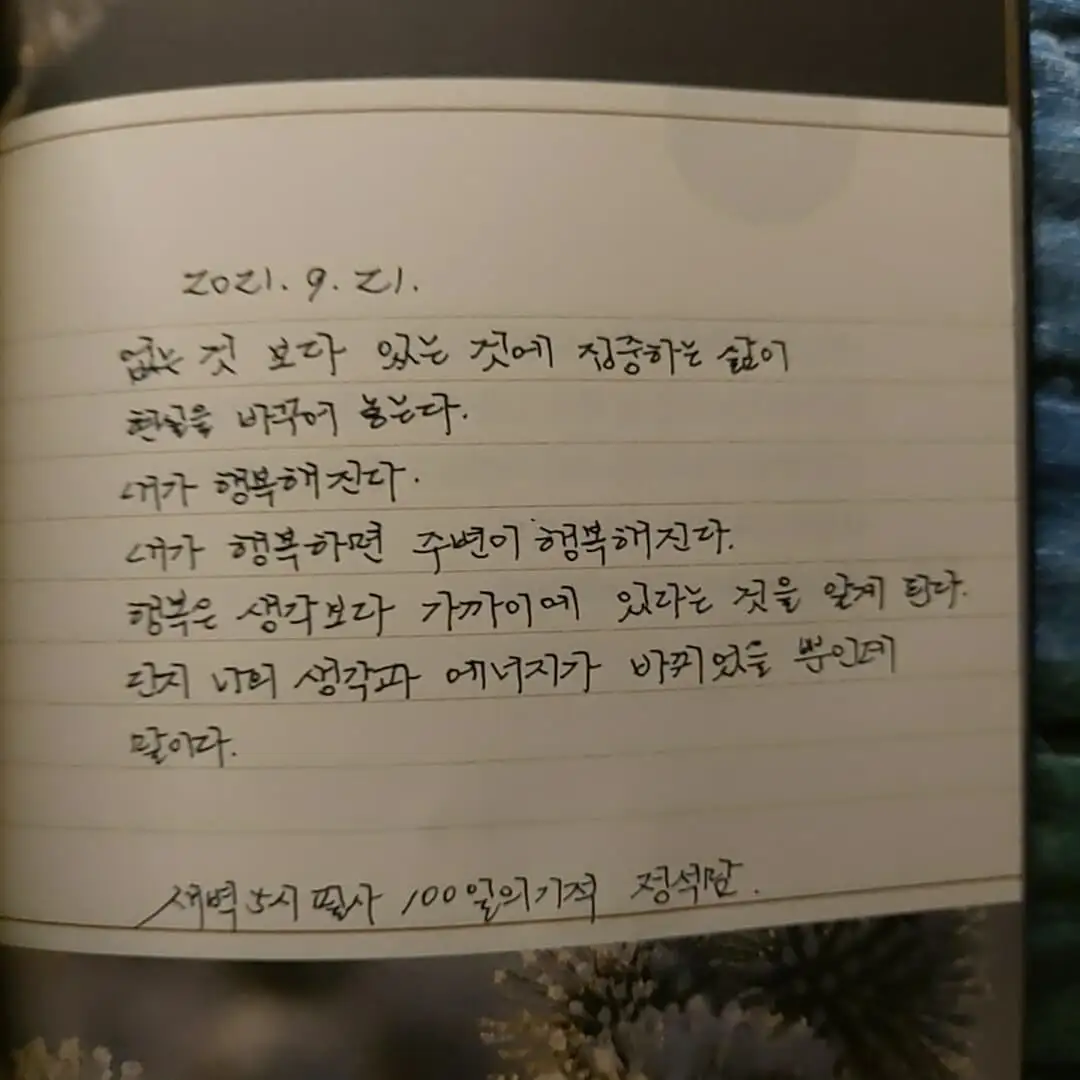 2021. 9. 21.
없는 것 보다 있는 것에 집중하는 삶이
현실을 바꾸어 놓는다.
내가 행복해진다.
내가 행복하면 주변이 행복해진다.
행복은 생각보다 가까이에 있다는 것을 알게 된다.
단지 나의 생각과 에너지가 바뀌었을 뿐인데
말이다.
새벽 5시 필사 100일의기적 정석만.